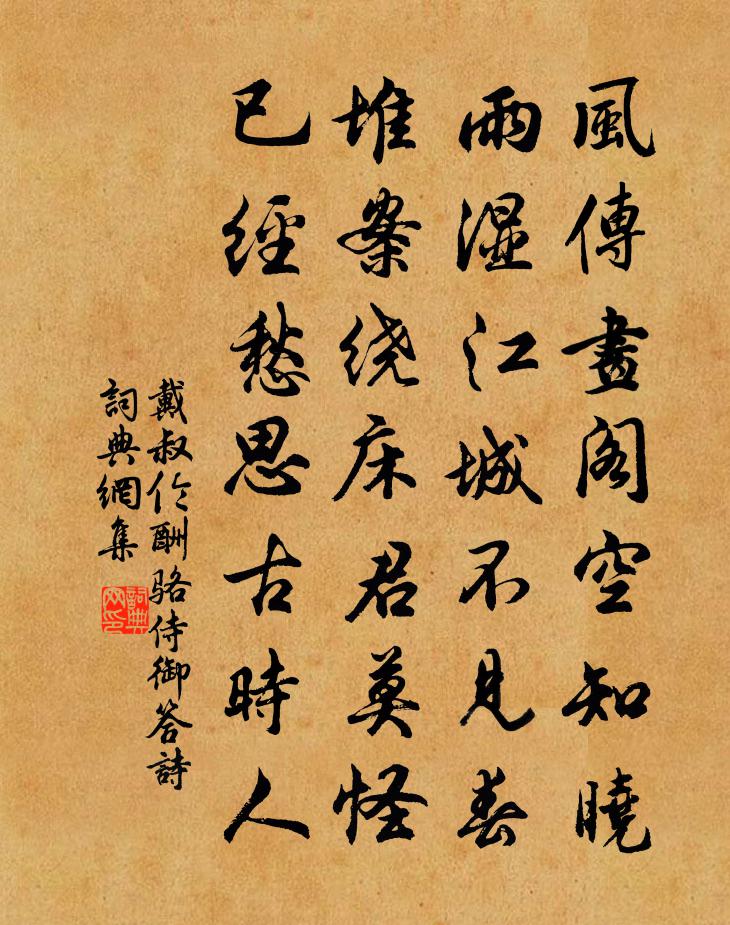 風傳畫閣空知曉
雨湿江城不見春
堆案绕床君莫怪
已經愁思古時人
戴叔伦酬骆侍御答詩
詞典網集
詞典网印